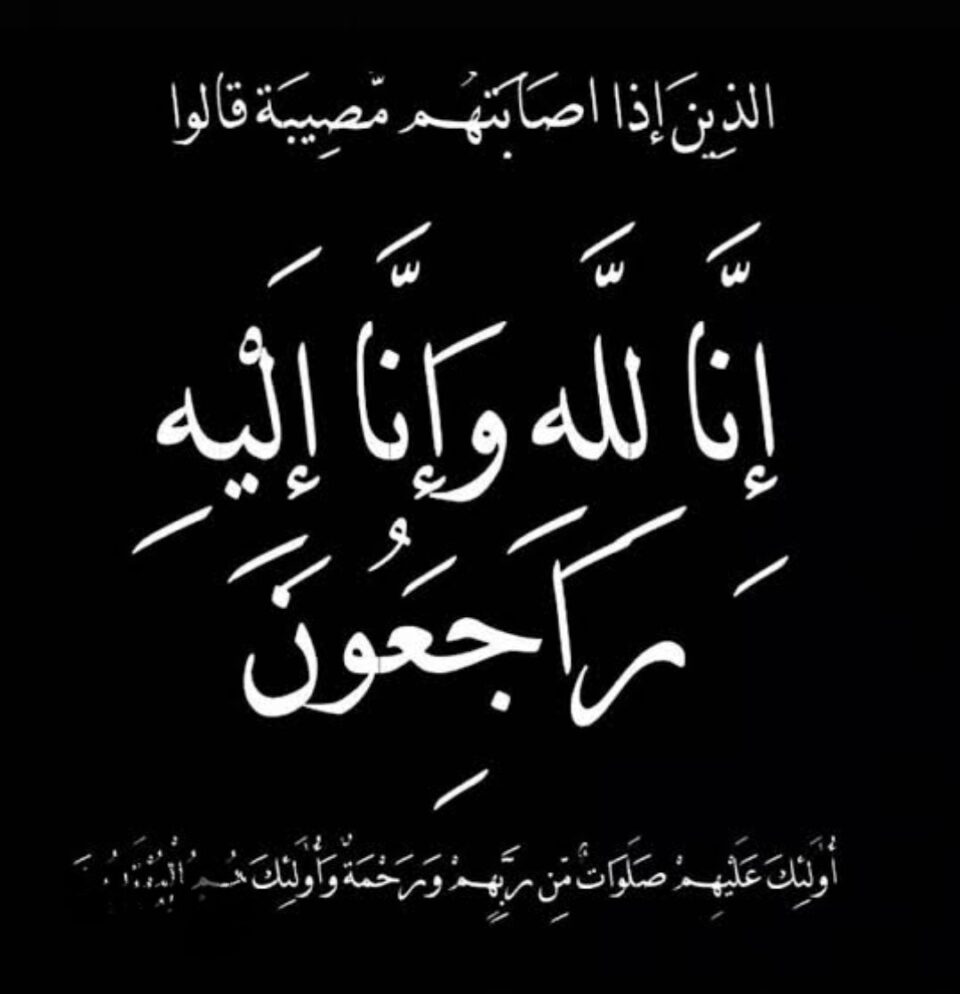 الذِينَ إذا اصَابَتهُم مّصِيبَة قالوا
إِنَّا لله وَإِنَّا إِلَيْهِ
رَاجَعُونَ
أُولَئِكَ عَلَيْهِمْ صَلَوَاتٌ مِّن رَبِّهِمْ وَرَحْمَةٌ وَأُولَئِكَ هُمُ